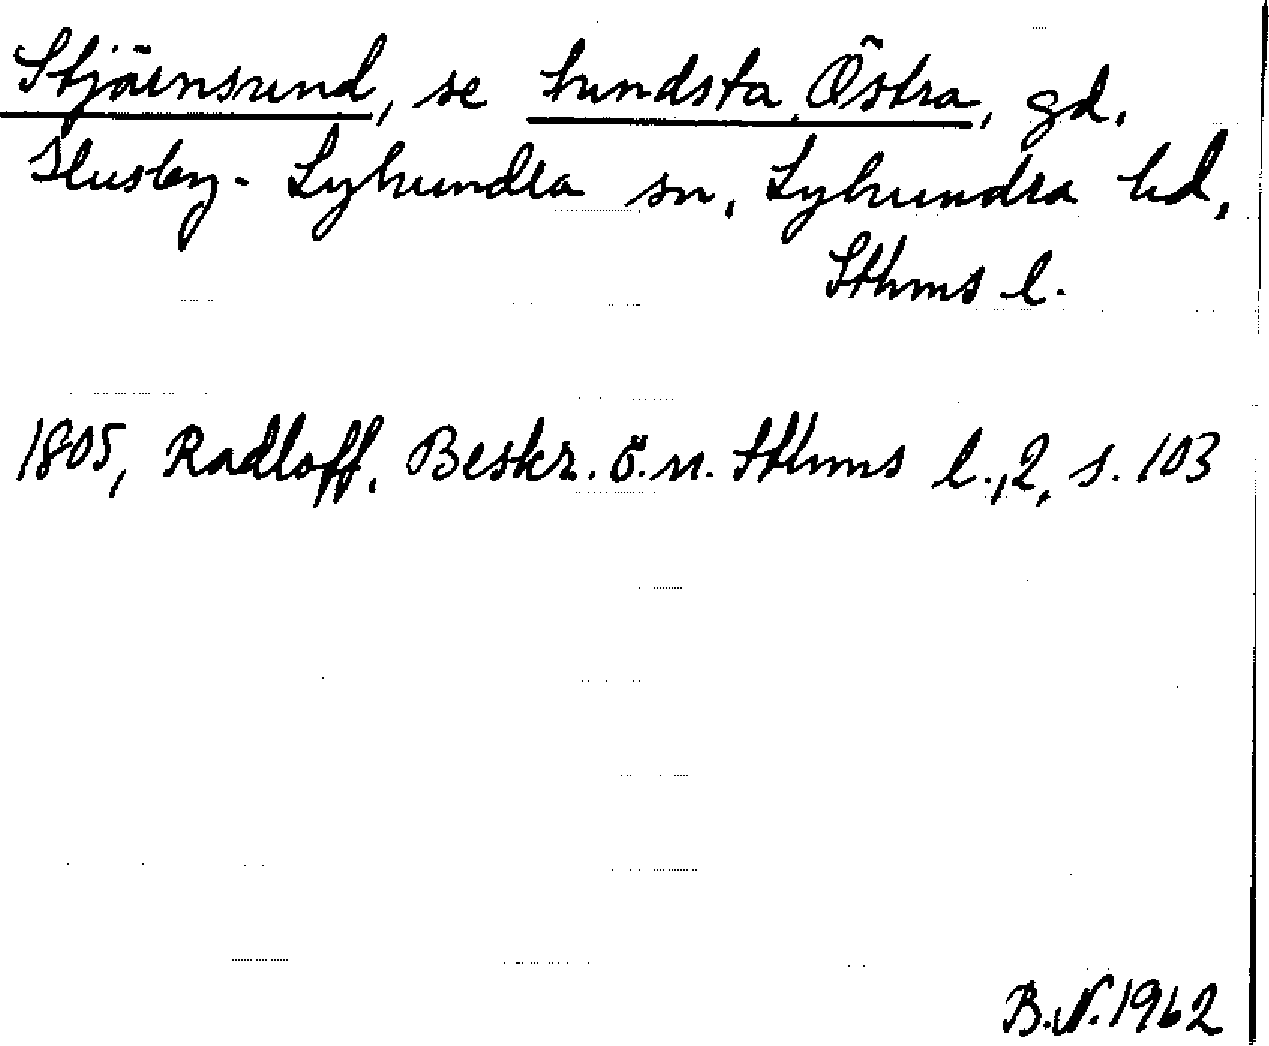 Stjärnsund, se Lundsta, Östra, gd,
Husby-Lyhundra sn, Lyhundra hd,
Sthms l.
1805, Radloff, Beskr. ö. n. Sthms l., 2, s. 103
B.N. 1962